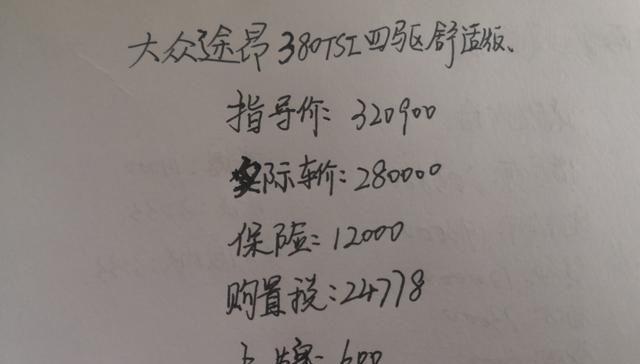 大众途昂380TSI四驱舒适版、
指导价：320900
实际车价：280000
保险：12000
购置税：24778
上牌：600